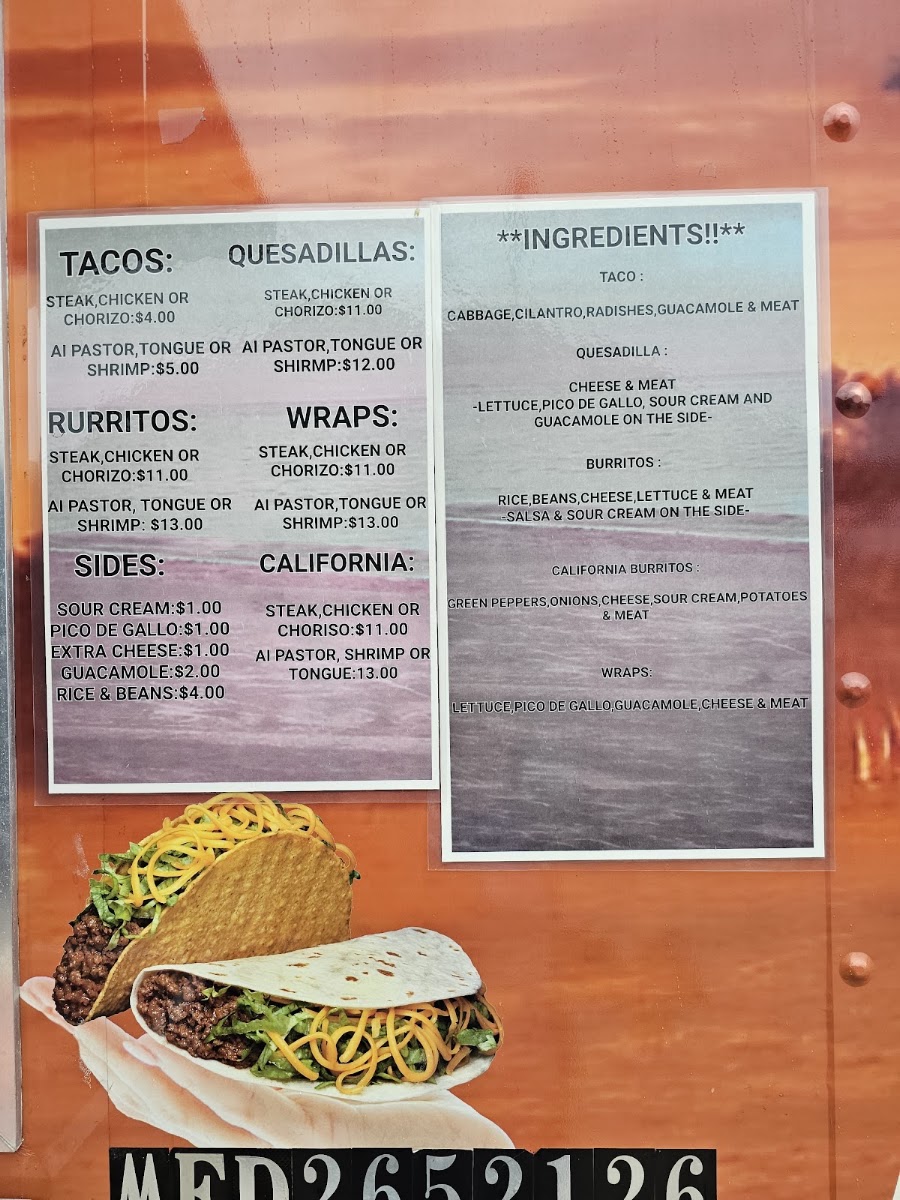 TACOS:
STEAK,CHICKEN OR
CHORIZO:$4.00
AI PASTOR,TONGUE OR
SHRIMP:$5.00
QUESADILLAS:
STEAK,CHICKEN OR
CHORIZO:$11.00
AI PASTOR,TONGUE OR
SHIRMP:$12.00
RURRITOS:
STEAK,CHICKEN OR
CHORIZO:$11.00
AI PASTOR, TONGUE OR
SHRIMP: $13.00
WRAPS:
STEAK,CHICKEN OR
CHORIZO:$11.00
AI PASTOR,TONGUE OR
SHRIMP:$13.00
SIDES:
SOUR CREAM:$1.00
PICO DE GALLO:$1.00
EXTRA CHEESE:$1.00
GUACAMOLE:$2.00
RICE & BEANS:$4.00
CALIFORNIA:
STEAK,CHICKEN OR
CHORISO:$11.00
AI PASTOR, SHRIMP OR
TONGUE:13.00
**INGREDIENTS!!**
TACO :
CABBAGE,CILANTRO,RADISHES,GUACAMOLE & MEAT
QUESADILLA :
CHEESE & MEAT
-LETTUCE,PICO DE GALLO, SOUR CREAM AND
GUACAMOLE ON THE SIDE-
BURRITOS :
RICE,BEANS,CHEESE,LETTUCE & MEAT
-SALSA & SOUR CREAM ON THE SIDE-
CALIFORNIA BURRITOS :
GREEN PEPPERS,ONIONS,CHEESE,SOUR CREAM,POTATOES
& MEAT
WRAPS:
LETTUCE,PICO DE GALLO,GUACAMOLE,CHEESE & MEAT
MFD2652126